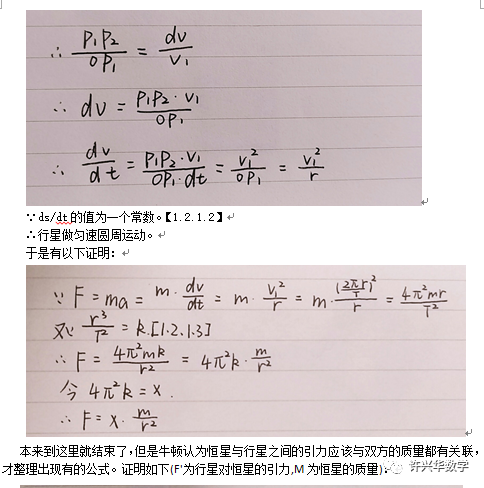 ∴ P₁P₂/OP₁ = dv/v₁
∴ dv = P₁P₂·v₁/OP₁
∴ dv/dt = P₁P₂·v₁/OP₁·dt = v₁²/OP₁ = v₁²/r
∵ds/dt的值为一个常数。【1.2.1.2】
∴行星做匀速圆周运动。
于是有以下证明：
∵ F = ma = m·dv/dt = m·v₁²/r = m·(2πr/T)²/r = 4π²mr/T²
又∵ r³/T² = k.[1.2.1.3]
∴ F = 4π²mk/r² = 4π²k·m/r²
令 4π²k = x.
∴ F = x·m/r²
本来到这里就结束了，但是牛顿认为恒星与行星之间的引力应该与双方的质量都有关联，
才整理出现有的公式。证明如下(F'为行星对恒星的引力,M 为恒星的质量)：
许兴华数学